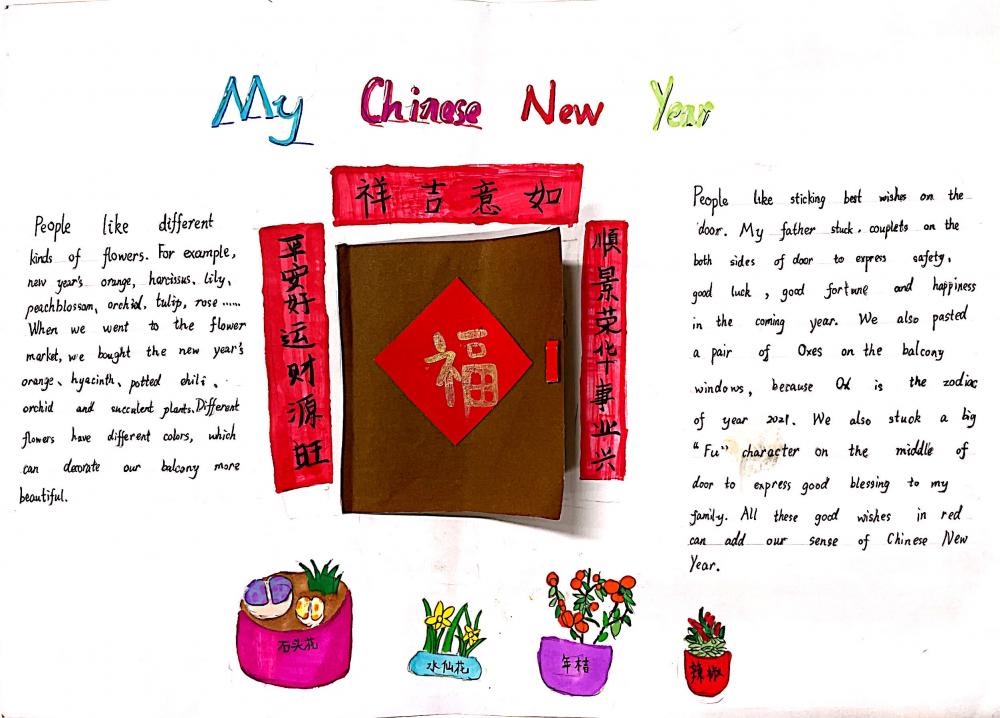 My Chinese New Year
祥吉意如
平安好运财源旺
順景荣华事业兴
福
People like different
kinds of flowers. For example,
new year's orange, harcissus, lily,
peachblossom, orchid, tulip, rose ......
When we went to the flower
market, we bought the new year's
orange、hyacinth、potted chili、
orchid and succulent plants. Different
flowers have different colors, which
can decorate our balcony more
beautiful.
People like sticking best wishes on the
door. My father stuck couplets on the
both sides of door to express safety,
good luck , good fortune and happiness
in the coming year. We also pasted
a pair of Oxes on the balcony
windows, because Ox is the zodiac
of year 2021. We also stuck a big
"Fu" character on the middle of
door to express good blessing to my
family. All these good wishes in red
can add our sense of Chinese New
Year.
石头花
水仙花
年桔
辣椒